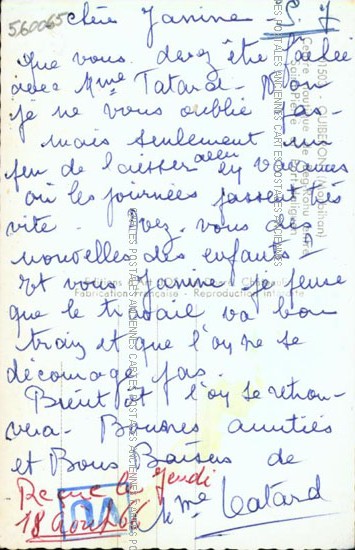 560065
chère Janine - S. J
que vous devez être fachée
avec Mme Tatard - Non
je ne vous oublie pas -
mais seulement un
peu de laisser aller en vacances
où les journées passent très
vite. Avez vous des
nouvelles des enfants -
Et vous Janine je pense
que le travail va bon
train et que l'on ne se
décourage pas.
Bientôt l'on se retrou-
vera - Bonnes amitiés
et Bons Baisers de
Mme Tatard
Reçue le Jeudi
18 août 66
CARTES POSTALES ANCIENNES
QUIBERON (Morbihan)
Fabrication Française - Reproduction interdite